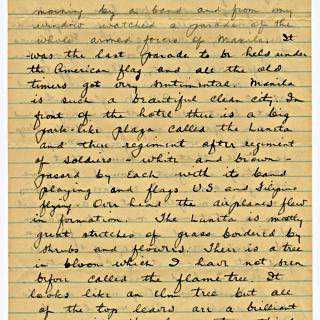 morning by a band and from my
window watched a parade of the
whole armed forces of Manila. It
was the last parade to be held under
the American flag and all the old
timers got very sentimental. Manila
is such a beautiful clean city. In
front of the hotel there is a big
park-like plaza called the Luneta
and there regiment after regiment
of soldiers - white and brown -
passed by each with its band
playing and flags U.S and Filipino
flying. Over head the airplanes flew
in formation. The Luneta is mostly
great stretches of grass bordered by
shrubs and flowers. There is a tree
in bloom which I have not seen
before called the flame tree. It
looks like an elm tree but all
of the top leaves are a brilliant